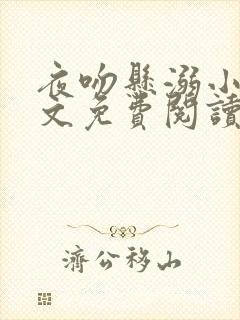 夜吻懸溺小
文免費閱讀
濟公移山